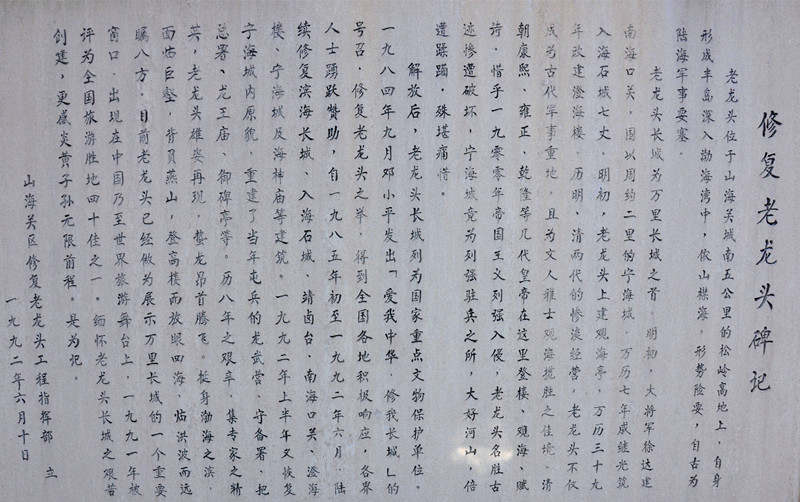 修复老龙头碑记
老龙头位于山海关城南五公里的松岭高地上．自身
形成半岛深入渤海湾中，依山襟海．形势险要，自古为
陆海军事要塞．
老龙头长城为万里长城之首．明初，大将军徐达建
南海口关，围以周约二里的宁海城．万历七年戚继光筑
入海石城七丈，明初，老龙头上建观海亭．万历三十九
年改建澄海楼．历明、清两代的惨淡经营，老龙头不仅
成为古代军事重地，且为文人雅士观海揽胜之佳境．清
朝康熙、雍正、乾隆等几代皇帝在这里登楼、观海、赋
诗．惜乎一九零零年帝国主义列强入侵，老龙头名胜古
迹惨遭破坏，宁海城竟为列强驻兵之所．大好河山，倍
遭蹂躏，殊堪痛惜．
解放后，老龙头长城列为国家重点文物保护单位．
一九八四年九月邓小平发出「爱我中华 修我长城」的
号召．修复老龙头之举．得到全国各地积极响应，各界
人士踊跃赞助，自一九八五年初至一九九二年六月．陆
续修复滨海长城、入海石城、靖卤台、南海口关、澄海
楼、宁海城及海神庙等建筑。一九九二年上半年又恢复
宁海城内原貌．重建了当年屯兵的龙武营．守备署．把
总署、龙王庙、御碑亭等。历八年之艰辛．集专家之精
英，老龙头雄姿再现．蛰龙昂首腾飞。挺身渤海之滨．
面临巨壑，背负燕山，登高楼而放眼四海．临洪波而远
瞩八方．目前老龙头已经做为展示万里长城的一个重要
窗口．出现在中国乃至世界旅游舞台上．一九九一年被
评为全国旅游胜地四十佳之一．缅怀老龙头长城之艰苦
创建，更感炎黄子孙无限前程。是为记．
山海关区修复老龙头工程指挥部 立
一九九二年六月十日